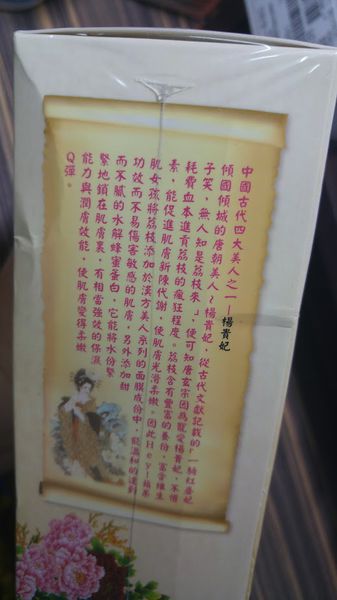 中國古代四大美人之一–楊貴妃
傾國傾城的唐朝美人~楊貴妃，從古代文獻記載的「一騎紅塵妃
子笑，無人知是荔枝來」，便可知唐玄宗因為寵愛楊貴妃，不惜
耗費血本進貢荔枝的瘋狂程度。荔枝含有豐富的養份，富含維生
素，能促進肌膚新陳代謝，使肌膚光滑柔嫩。因此Hey!蘋果
肌女孩將荔枝添加於漢方美人序列的面膜成份中，能溫和的達到
功效而不易傷害敏感的肌膚，另外添加甜
而不膩的水解蜂蜜蛋白，它能將水份緊
緊地鎖在肌膚裏，有相當強效的保濕
能力與潤膚效能，使肌膚變得柔嫩
Q彈。